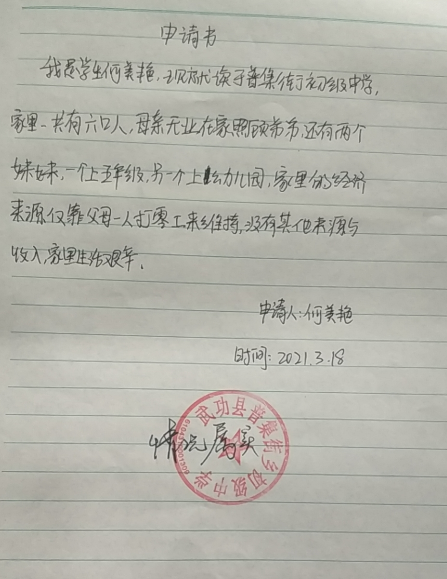 申请书
我是学生何美艳,现就读于普集街初级中学,
家里一共有六口人,母亲无业在家照顾弟弟,还有两个
妹妹,一个上五年级,另一个上幼儿园,家里的经济
来源仅靠父母一人打零工来维持,没有其他来源与
收入,家里生活艰辛。
申请人:何美艳
时间:2021.3.18
情况属实
武功县普集街乡初级中学